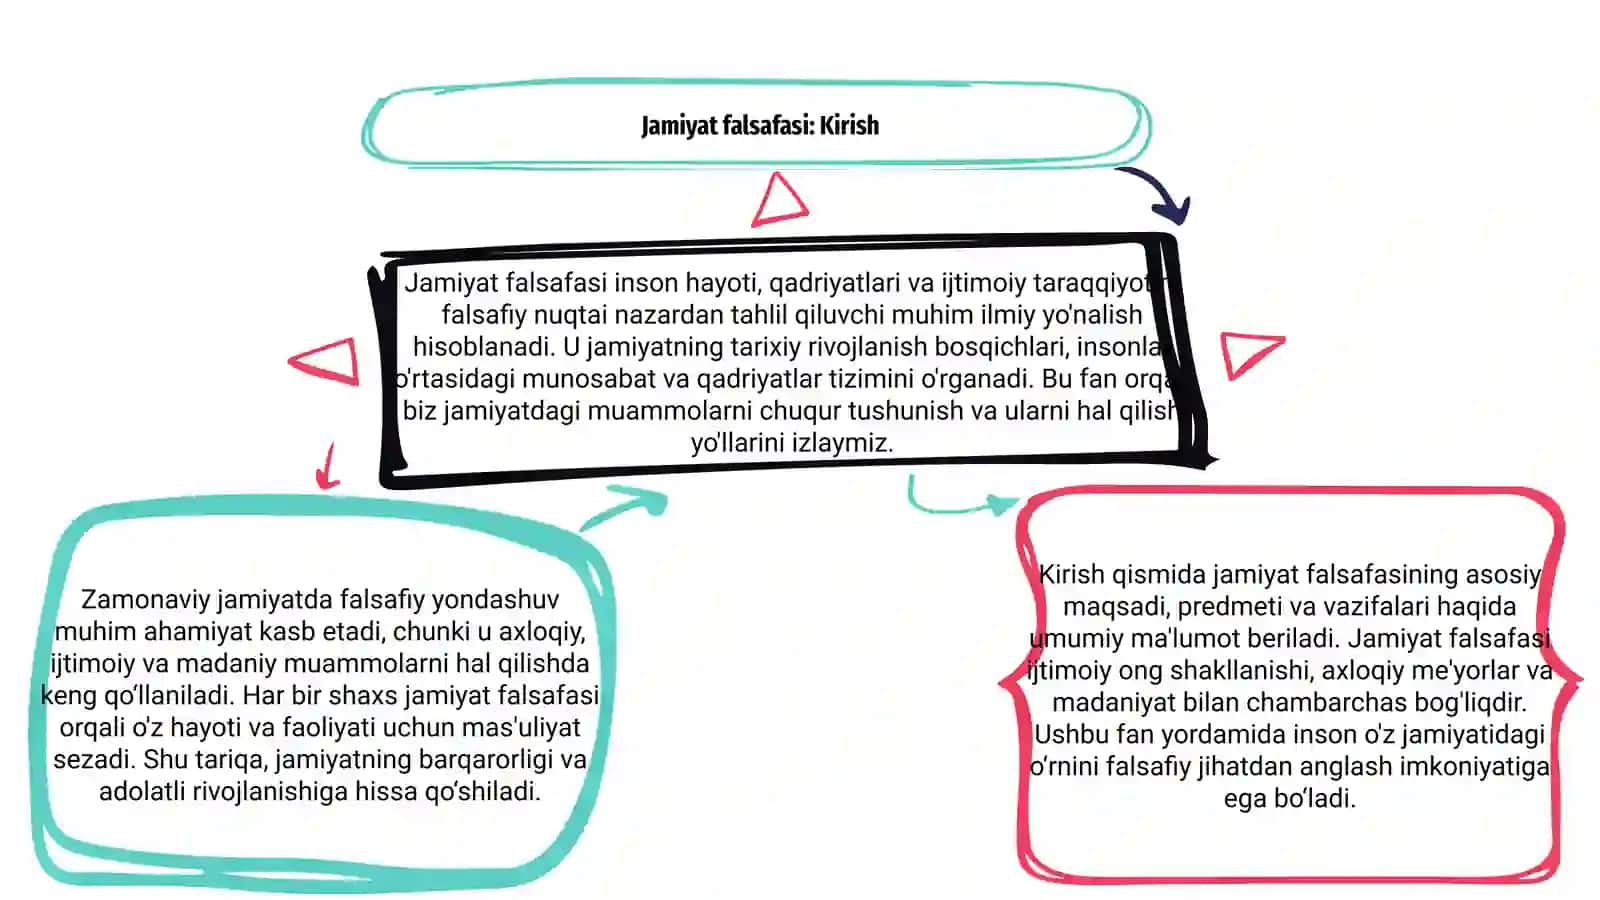 Jamiyat falsafasi: Kirish
Jamiyat falsafasi inson hayoti, qadriyatlari va ijtimoiy
falsafiy nuqtai nazardan tahlil qiluvchi muhim ilmiy yo'nalish
hisoblanadi. U jamiyatning tarixiy rivojlanish bosqichlari,
o'rtasidagi munosabat va qadriyatlar tizimini o'rganadi. Bu fan
biz jamiyatdagi muammolarni chuqur tushunish va ularni hal qilish
yo'llarini izlaymiz.
Zamonaviy jamiyatda falsafiy yondashuv
muhim ahamiyat kasb etadi, chunki u axloqiy,
ijtimoiy va madaniy muammolarni hal qilishda
keng qo‘llaniladi. Har bir shaxs jamiyat falsafasi
orqali o'z hayoti va faoliyati uchun mas'uliyat
sezadi. Shu tariqa, jamiyatning barqarorligi va
adolatli rivojlanishiga hissa qo‘shiladi.
Kirish qismida jamiyat falsafasining asosiy
maqsadi, predmeti va vazifalari haqida
umumiy ma'lumot beriladi. Jamiyat falsafasi
ijtimoiy ong shakllanishi, axloqiy me'yorlar va
madaniyat bilan chambarchas bog'liqdir.
Ushbu fan yordamida inson o'z jamiyatidagi
o‘rnini falsafiy jihatdan anglash imkoniyatiga
ega bo‘ladi.